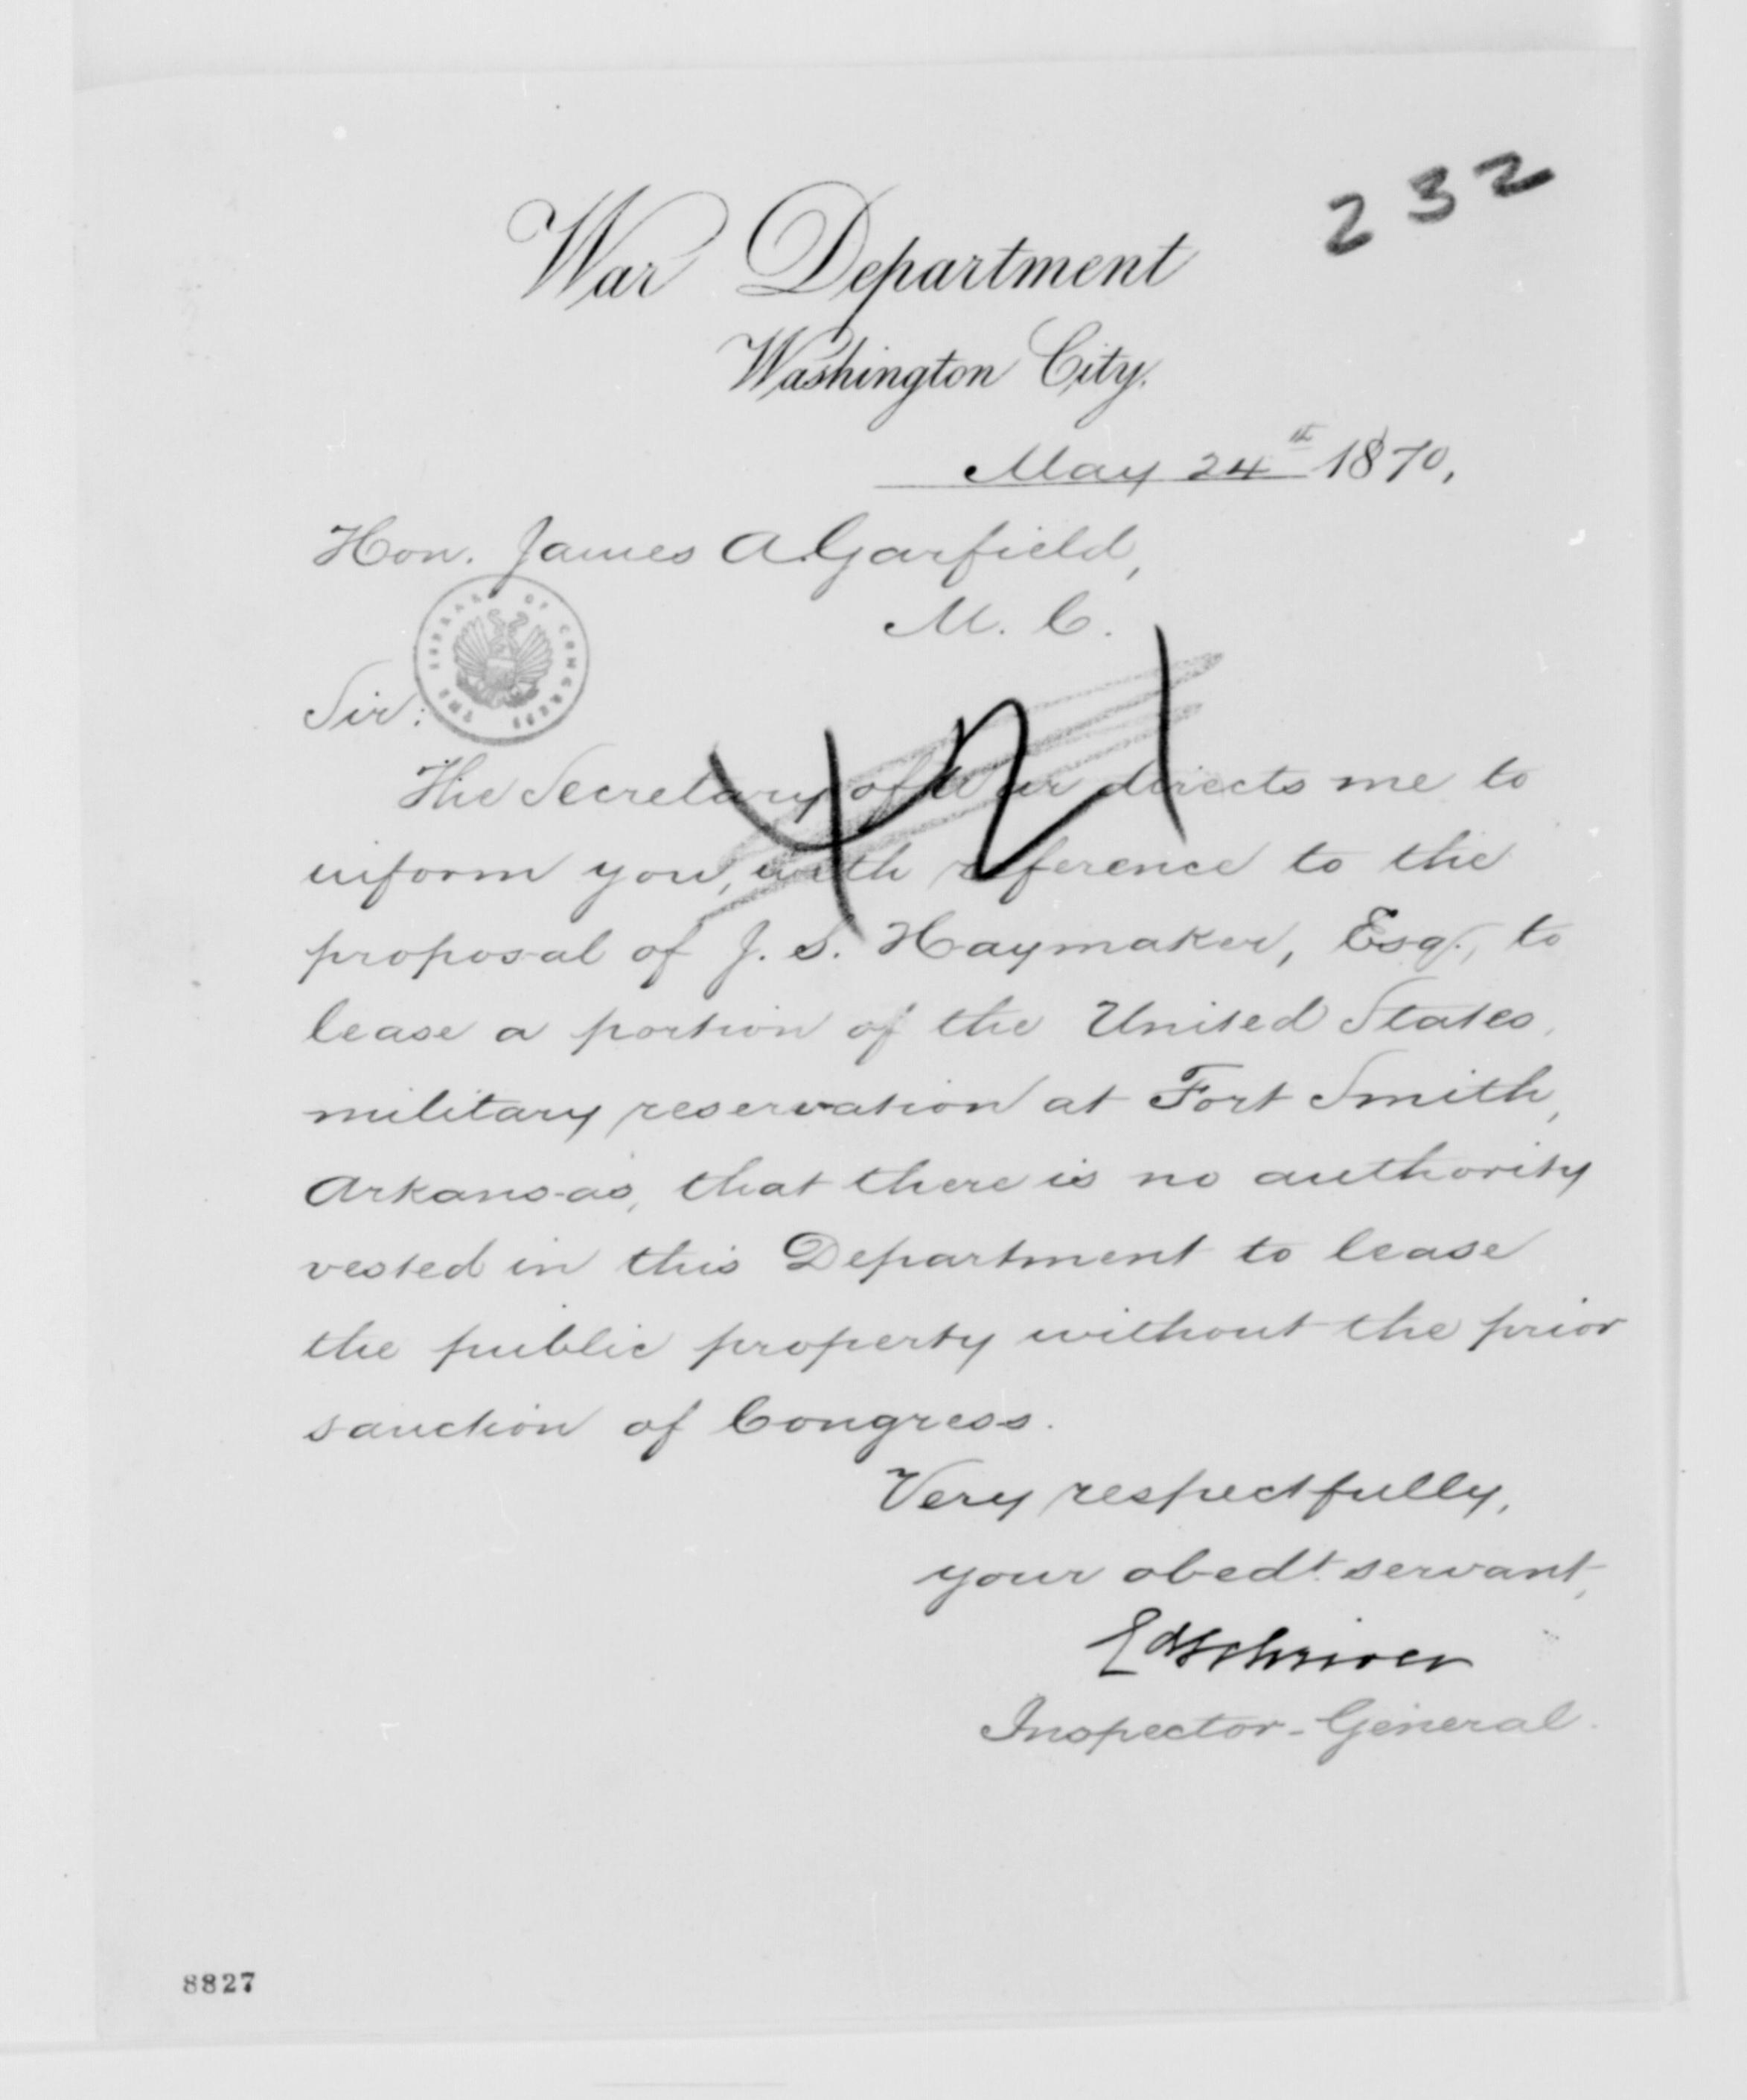 232
War Department
Washington City.
May 24th 1870,
Hon. James A. Garfield,
M. C.
THE LIBRARY OF CONGRESS
Sir:
421
The Secretary of War directs me to
inform you, with reference to the
proposal of J. S. Haymaker, Esq., to
lease a portion of the United States
military reservation at Fort Smith,
Arkansas, that there is no authority
vested in this Department to lease
the public property without the prior
sanction of Congress.
Very respectfully,
your obedt. servant,
Ed Schriver
Inspector-General.
8827